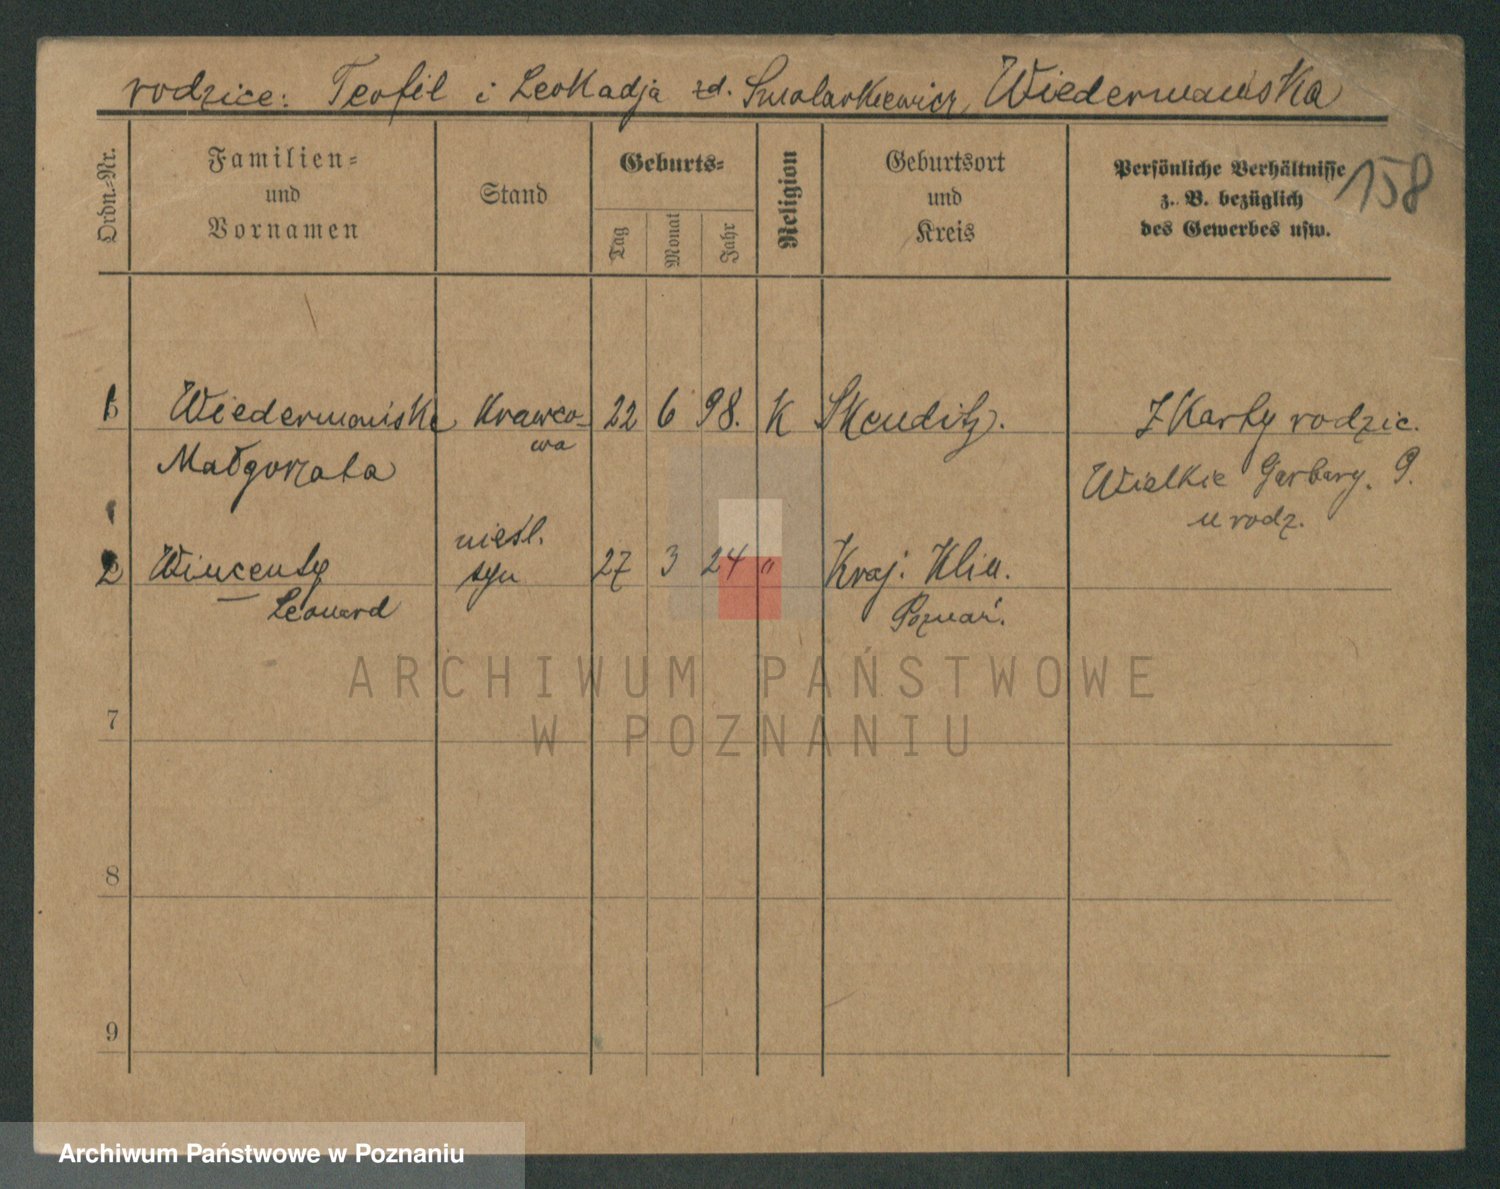 rodzice: Teofil i Leokadja zd. Smolarkiewicz, Wiedermańska
Ordn.-Nr.
Familien-
und
Vornamen
Stand
Geburts-
Tag
Monat
Jahr
Religion
Geburtsort
und
Kreis
Persönliche Verhältnisse
z. B. bezüglich
des Gewerbes usw.
158
1 Wiedermańska Krawco- 22 6 98. K Skeuditz. Z Karty rodzic.
wa
Małgorzata Wielkie Garbary. 9.
urodz.
nieśl.
2 Wincenty syn 27 3 24 " Kraj. Klin.
Leonard Poznań.
7
8
9
ARCHIWUM PAŃSTWOWE
W POZNANIU
Archiwum Państwowe w Poznaniu